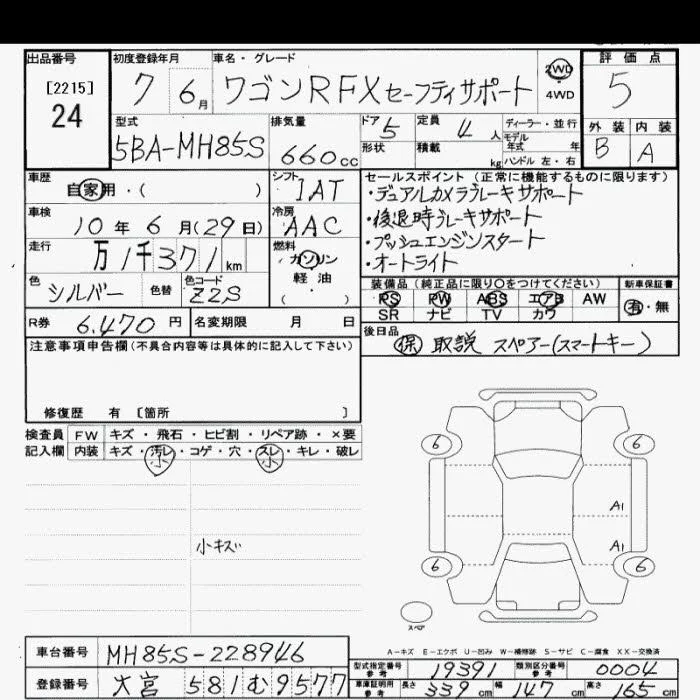 出品番号 初度登録年月 車名・グレード 評価点
[2215] 24
7 6月 ワゴンR FX セーフティサポート 2WD 4WD 5
型式 排気量 ドア 定員 ディーラー・並行 外装 内装
5BA-MH85S 660cc 5 4人 モデル年式 年 B A
形状 積載 kg ハンドル 左・右
車歴 シフト セールスポイント (正常に機能するものに限ります)
自家用・( ) IAT ・デュアルカメラブレーキサポート
車検 冷房 ・後退時ブレーキサポート
10年 6月(29日) AAC ・プッシュエンジンスタート
走行 燃料 ・オートライト
万1千371km ガソリン 軽油 ( )
色 色替 色コード 装備品 (純正品に限り○をつけてください) 新車保証書
シルバー Z2S PS PW ABS エアB AW 有・無
SR ナビ TV カワ
R券 6,470円 名変期限 月 日 後日品
保 取説 スペアー(スマートキー)
注意事項申告欄(不具合内容等は具体的に記入して下さい)
修復歴 有 〔箇所 〕
検査員 FW キズ・飛石・ヒビ割・リペア跡・×要
記入欄 内装 キズ・汚レ・コゲ・穴・スレ・キレ・破レ
小 小
小キズ
6 6
A1
A1
6 6
スペア
A-キズ E-エクボ U-凹み W-補修跡 S-サビ C-腐食 XX-交換済
車台番号 MH85S-228946
型式指定番号 参考 19391 類別区分番号 参考 0004
登録番号 大宮 581 む 9577
車庫証明用 参考 長さ 339cm 幅 147cm 高さ 165cm